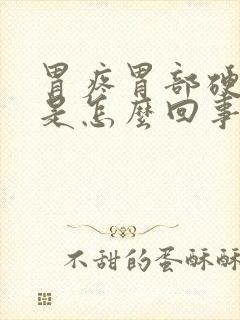 胃疼胃部硬
是怎麼回事
不甜的蛋酥酥